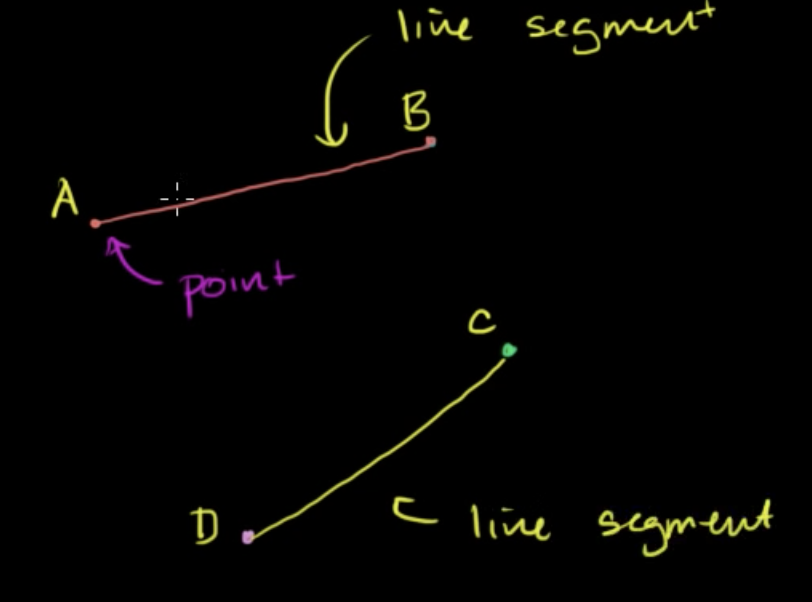 line segment
B
A
point
C
D
line segment